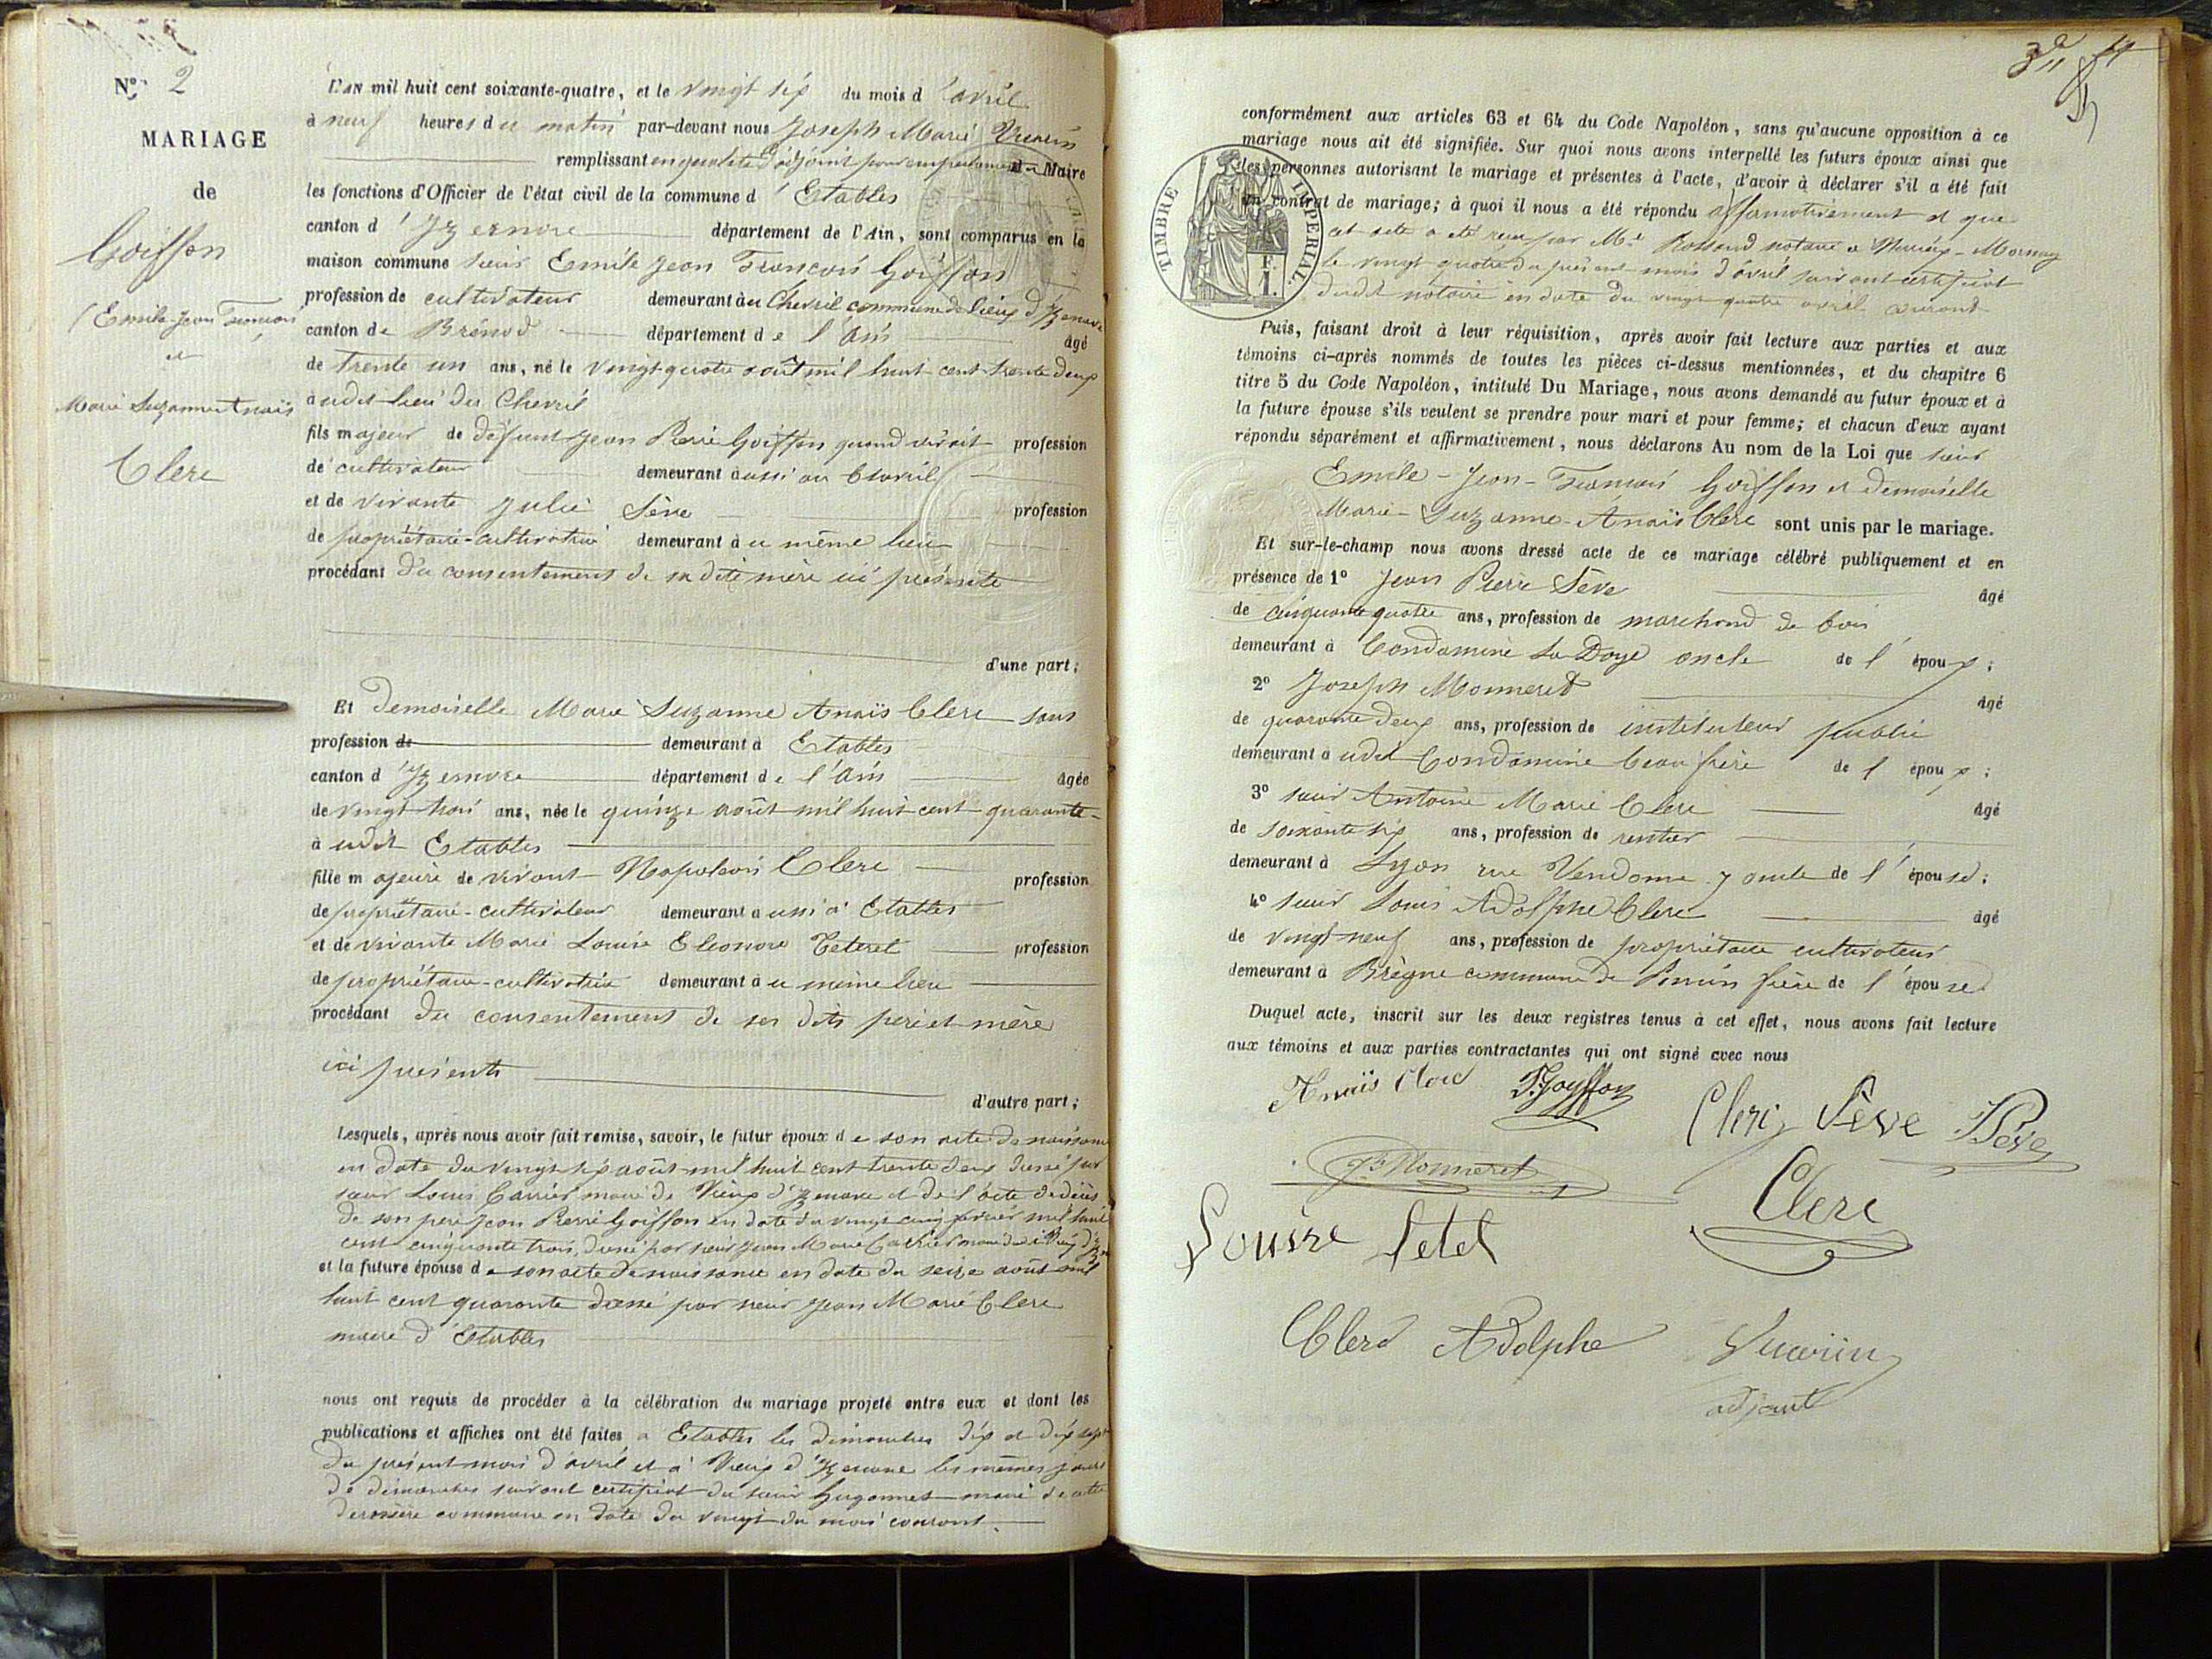 N° 2
MARIAGE
de
Goiffon
(Emile Jean François
et
Marie Suzanne Anaïs
Clerc
L'AN mil huit cent soixante-quatre, et le vingt six du mois d'avril
à neuf heures du matin par-devant nous Joseph Marie Vuarin
remplissant en qualité d'adjoint pour empêchement du Maire
les fonctions d'Officier de l'état civil de la commune d'Etables
canton d'Izernore département de l'Ain, sont comparus en la
maison commune sieur Emile Jean François Goiffon
profession de cultivateur demeurant à au Chevril commune de Vieux d'Izenave
canton de Brénod département de l'Ain âgé
de trente un ans, né le vingt quatre août mil huit cent trente deux
à udit lieu du Chevril
fils majeur de défunt Jean Pierre Goiffon quand vivait profession
de cultivateur demeurant à aussi au Chevril
et de vivante Julie Sève profession
de propriétaire-cultivatrice demeurant à u même lieu
procédant du consentement de sa dite mère ici présente
d'une part;
Et demoiselle Marie Suzanne Anaïs Clerc sans
profession de demeurant à Etables
canton d'Izernore département de l'Ain âgée
de vingt trois ans, née le quinze août mil huit cent quarante
à udit Etables
fille majeure de vivant Napoléon Clerc profession
de propriétaire-cultivateur demeurant à ussi à Etables
et de vivante Marie Louise Eleonore Teteret profession
de propriétaire-cultivatrice demeurant à u même lieu
procédant du consentement de ses dits père et mère
ici présents
d'autre part;
Lesquels, après nous avoir fait remise, savoir, le futur époux de son acte de naissance
en date du vingt six août mil huit cent trente deux dressé par
sieur Louis Carrier maire de Vieux d'Izenave et de l'acte de décès
de son père Jean Pierre Goiffon en date du vingt cinq février mil huit
cent cinquante trois, dressé par sieur Jean Marie Carrier maire dudit Vieux d'Iz
et la future épouse de son acte de naissance en date du seize août mil
huit cent quarante dressé par sieur Jean Marie Clerc
maire d'Etables
nous ont requis de procéder à la célébration du mariage projeté entre eux et dont les
publications et affiches ont été faites à Etables les dimanches dix et dix sept
du présent mois d'avril et à Vieux d'Izenave les mêmes jours
de dimanches suivant certificat du sieur Hugonnet maire de cette
dernière commune en date du vingt du mois courant
conformément aux articles 63 et 64 du Code Napoléon, sans qu'aucune opposition à ce
mariage nous ait été signifiée. Sur quoi nous avons interpellé les futurs époux ainsi que
les personnes autorisant le mariage et présentes à l'acte, d'avoir à déclarer s'il a été fait
un contrat de mariage; à quoi il nous a été répondu affirmativement et que
cet acte a été reçu par Me Rolland notaire à Mornay
le vingt quatre du présent mois d'avril suivant certificat
dudit notaire en date du vingt quatre avril courant
TIMBRE IMPERIAL
F.
1.
Puis, faisant droit à leur réquisition, après avoir fait lecture aux parties et aux
témoins ci-après nommés de toutes les pièces ci-dessus mentionnées, et du chapitre 6
titre 5 du Code Napoléon, intitulé Du Mariage, nous avons demandé au futur époux et à
la future épouse s'ils veulent se prendre pour mari et pour femme; et chacun d'eux ayant
répondu séparément et affirmativement, nous déclarons Au nom de la Loi que sieur
Emile-Jean-François Goiffon et demoiselle
Marie-Suzanne-Anaïs Clerc sont unis par le mariage.
Et sur-le-champ nous avons dressé acte de ce mariage célébré publiquement et en
présence de 1° Jean Pierre Sève âgé
de cinquante quatre ans, profession de marchand de bois
demeurant à Condamine La Doye oncle de l'époux;
2° Joseph Monneret âgé
de quarante deux ans, profession de instituteur public
demeurant à udit Condamine beau frère de l'époux;
3° sieur Antoine Marie Clerc âgé
de soixante six ans, profession de rentier
demeurant à Lyon rue Vendome 7 oncle de l'épouse;
4° sieur Louis Adolphe Clerc âgé
de vingt neuf ans, profession de propriétaire cultivateur
demeurant à Brégne commune de frère de l'épouse
Duquel acte, inscrit sur les deux registres tenus à cet effet, nous avons fait lecture
aux témoins et aux parties contractantes qui ont signé avec nous
Anaïs Clerc J. Goyffon Clerc Sève Sève
Jh Monneret
Clerc
Louise Tetet
Clerc Adolphe Vuarin
adjoint